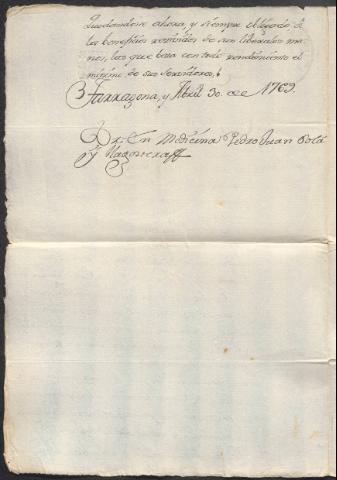 Quedandome ahora, y siempre obligado de
los beneficios recividos de sus liberales ma-
nos, las que besa con todo rendimiento el
minimo de sus servidores,
Tarragona, y Abril 30. de 1769
Dr. En Medicina Pedro Juan Polá
y